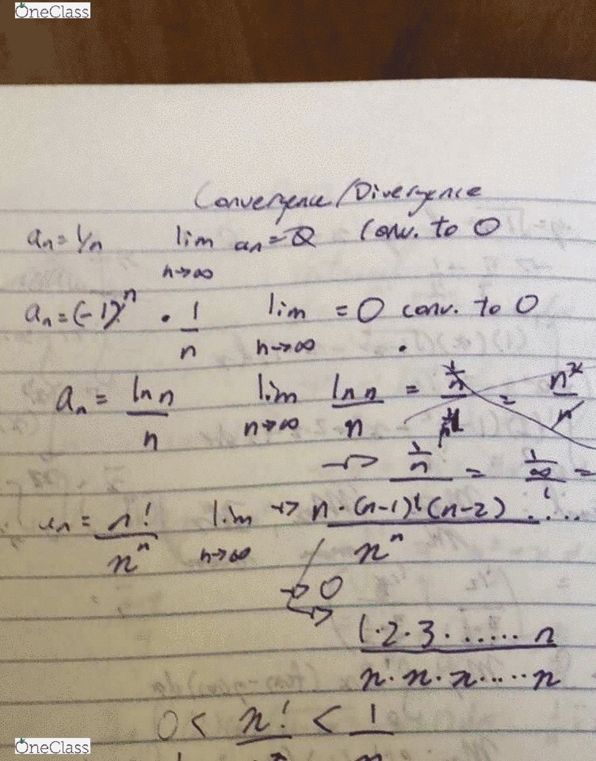 OneClass
Convergence/Divergence
an = 1/n lim n→∞ an = 0 conv. to 0
an = (-1)^n · 1/n lim n→∞ = 0 conv. to 0
an = ln n / n lim n→∞ ln n / n = =
→ 1/n = 1/∞ =
an = n! / n^n lim n→∞ → n·(n-1)·(n-2)..... / n^n
→ 0
→ 1·2·3·......n / n·n·n·....n
0 < n! < 1
OneClass